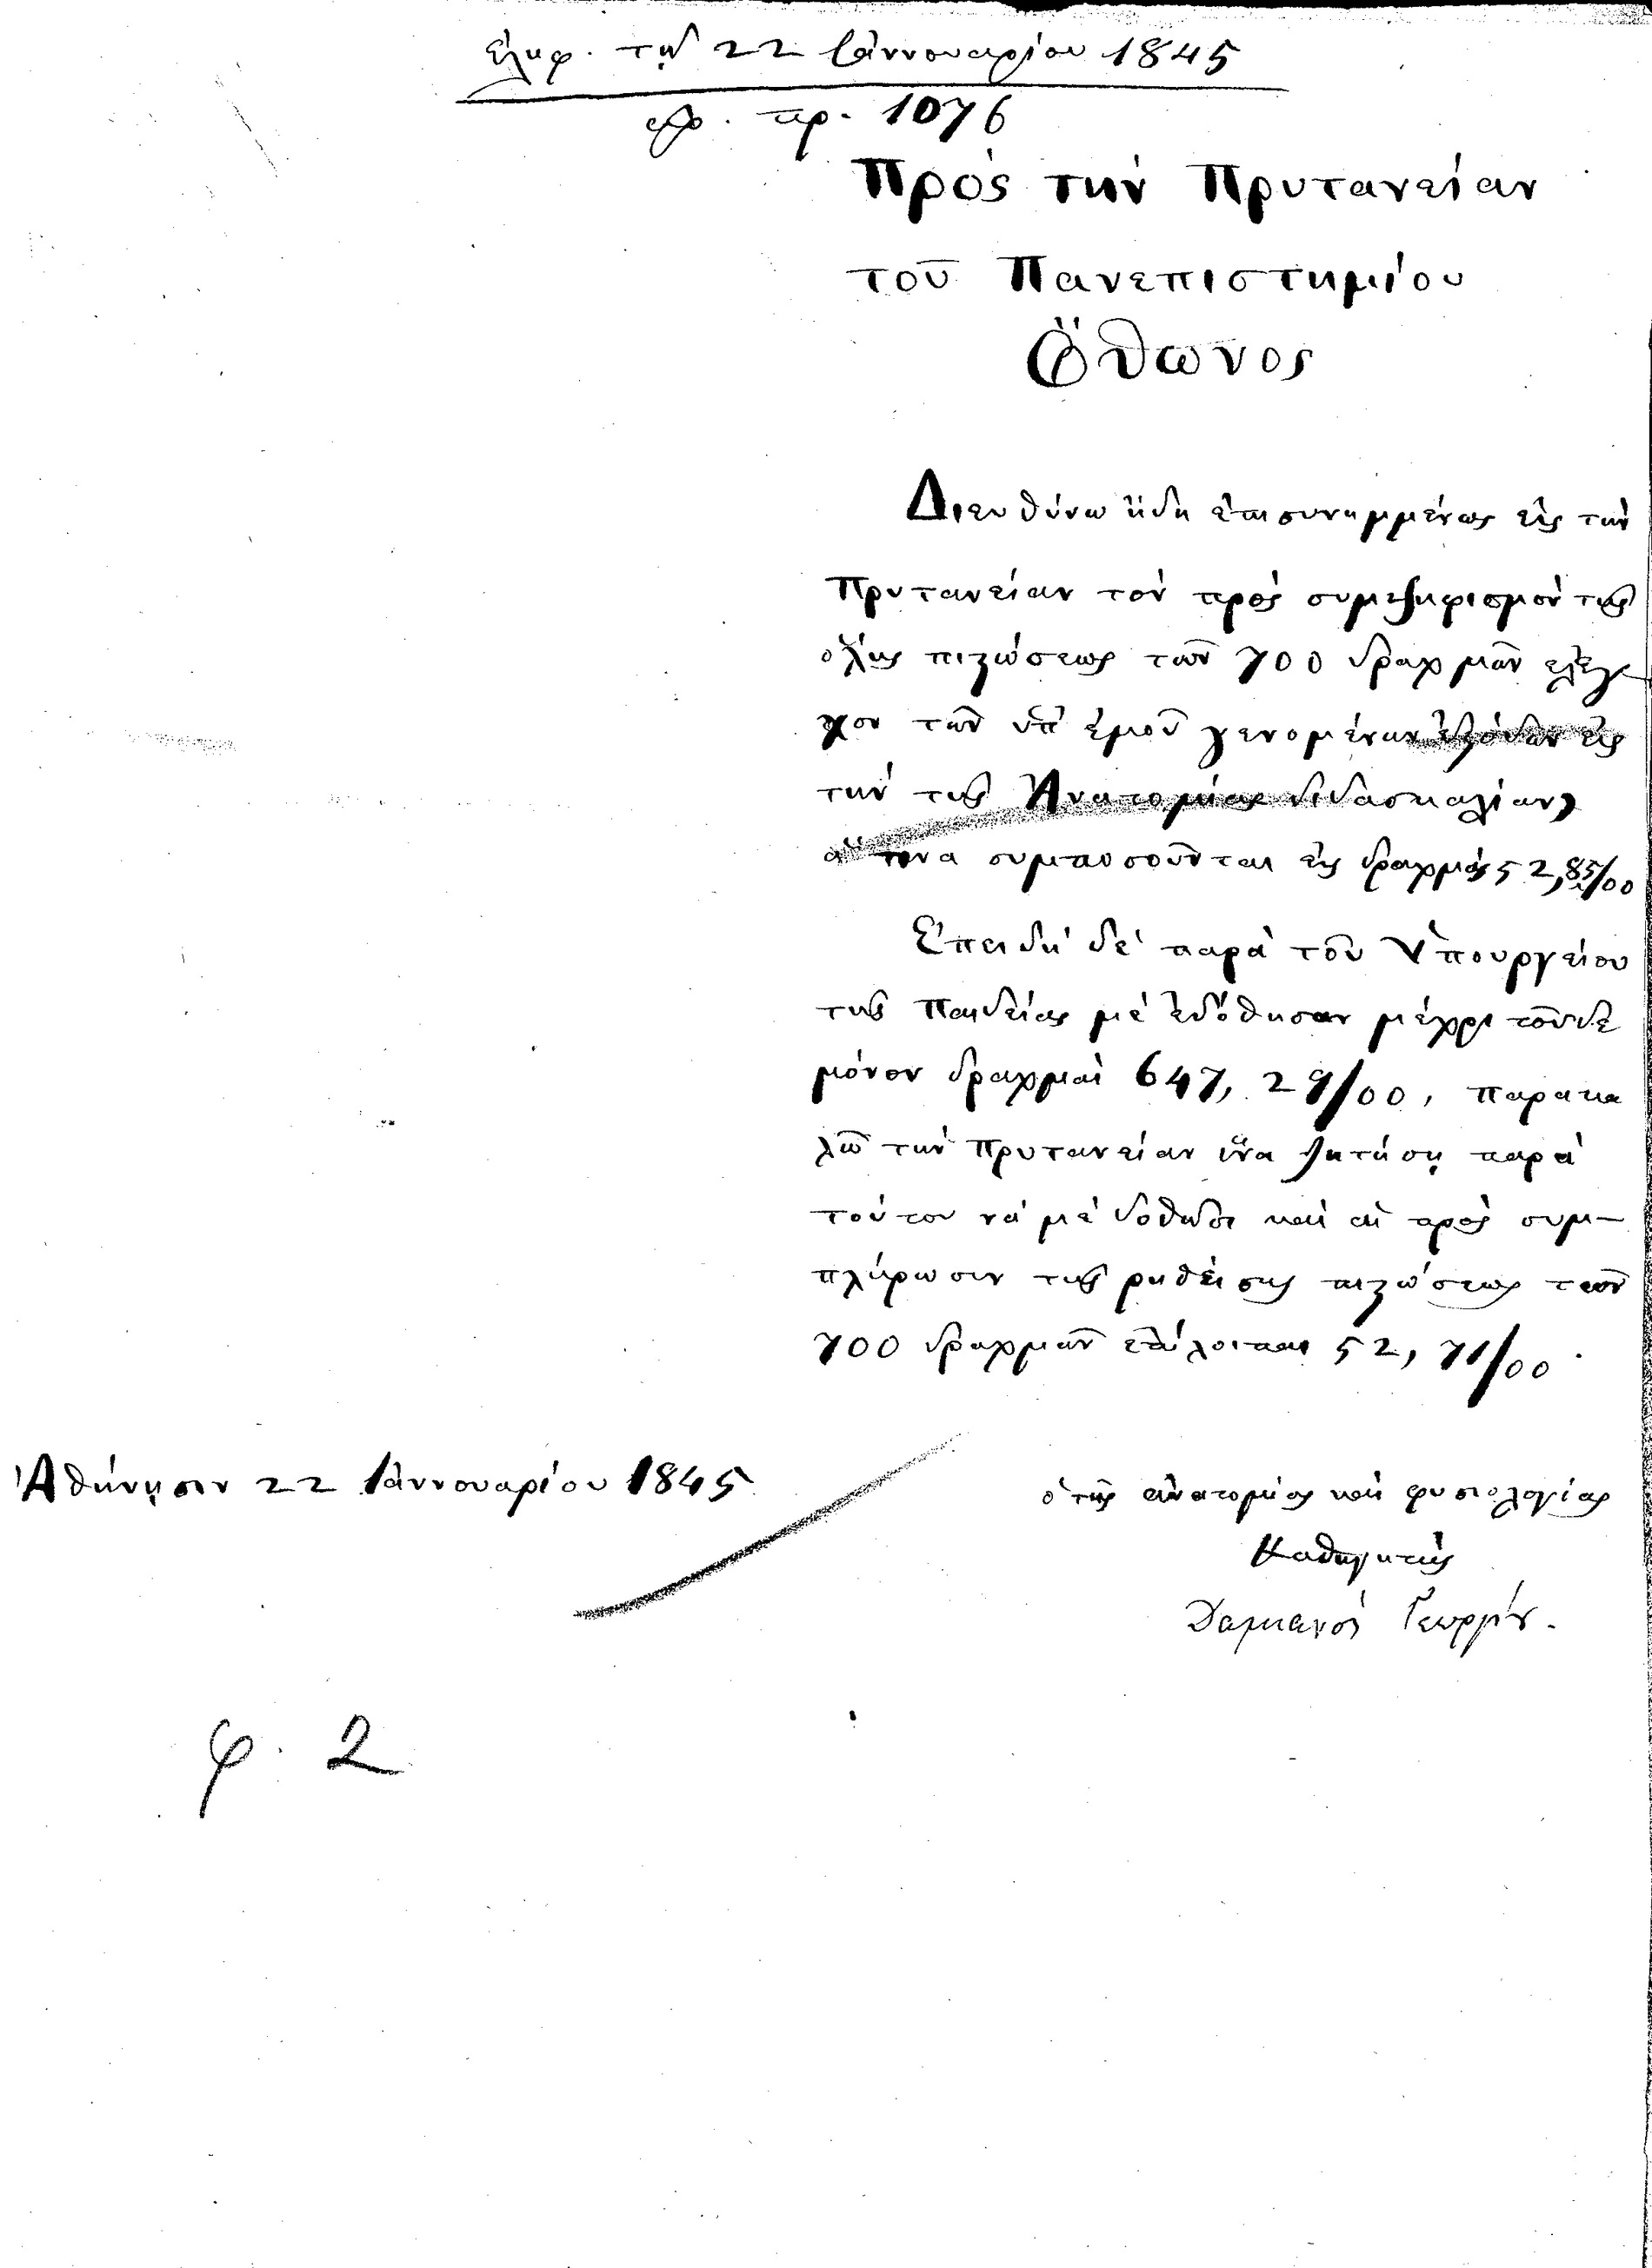 ἐλήφ. τῇ 22 Ἰαννουαρίου 1845
ἀρ. πρ. 1076
Πρὸς τὴν Πρυτανείαν
τοῦ Πανεπιστημίου
Ὄθωνος
Διευθύνω ἤδη ἐπισυνημμένως εἰς τὴν
Πρυτανείαν τὸν πρὸς συμψηφισμὸν τῆς
ὅλης πιστώσεως τῶν 700 δραχμῶν ἔλεγ-
χον τῶν ὑπ' ἐμοῦ γενομένων ἐξόδων εἰς
τὴν τῆς Ἀνατομίας διδασκαλίαν,
ἅτινα συμποσοῦνται εἰς δραχμὰς 52,85/00
Ἐπειδὴ δὲ παρὰ τοῦ Ὑπουργείου
τῆς Παιδείας μὲ ἐδόθησαν μέχρι τοῦδε
μόνον δραχμαὶ 647, 29/00, παρακα
λῶ τὴν Πρυτανείαν ἵνα ζητήσῃ παρὰ
τούτου νὰ μὲ δοθῶσι καὶ αἱ πρὸς συμ-
πλήρωσιν τῆς ρηθείσης πιστώσεως τῶν
700 δραχμῶν ἐπίλοιποι 52, 71/00.
Ἀθήνησιν 22 Ἰαννουαρίου 1845
ὁ τῆς ἀνατομίας καὶ φυσιολογίας
Καθηγητὴς
Δαμιανὸς Γεωργίου.
φ. 2